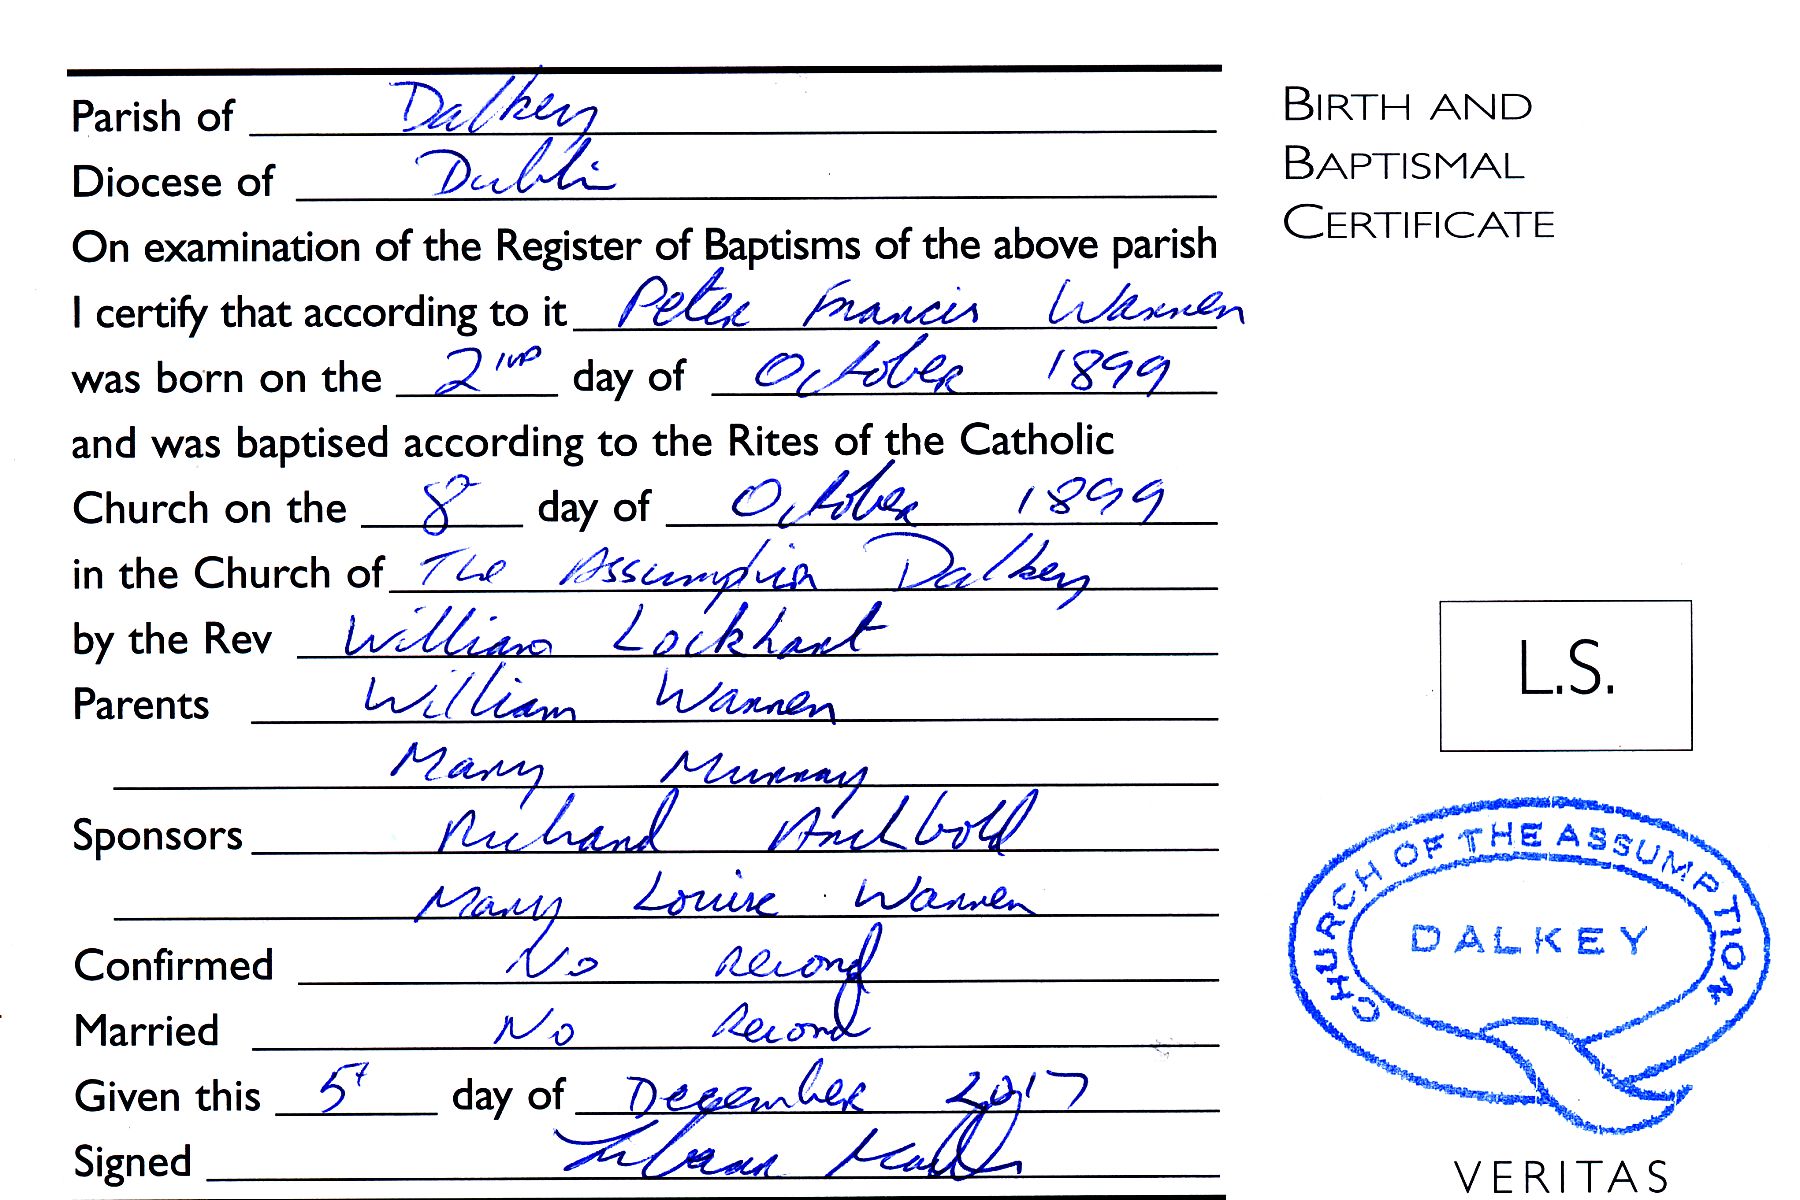 Parish of Dalkey
Diocese of Dublin
On examination of the Register of Baptisms of the above parish
I certify that according to it Peter Francis Warren
was born on the 2ND day of October 1899
and was baptised according to the Rites of the Catholic
Church on the 8 day of October 1899
in the Church of The Assumption Dalkey
by the Rev William Lockhart
Parents William Warren
Mary Murray
Sponsors Richard Archbold
Mary Louise Warren
Confirmed No record
Married No Record
Given this 5t day of December 2017
Signed
BIRTH AND
BAPTISMAL
CERTIFICATE
L.S.
CHURCH OF THE ASSUMPTION
DALKEY
VERITAS